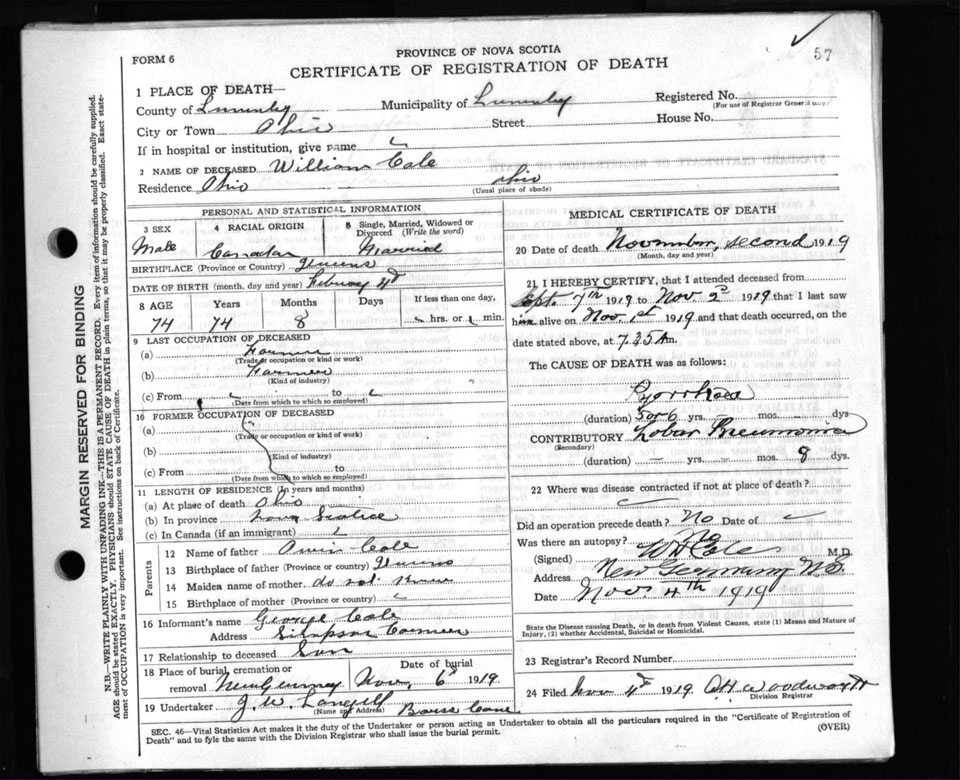 57
FORM 6
PROVINCE OF NOVA SCOTIA
CERTIFICATE OF REGISTRATION OF DEATH
1 PLACE OF DEATH—
County of Lunenby Municipality of Lunenby Registered No.
(For use of Registrar General only)
City or Town Ohio Street House No.
If in hospital or institution, give name
2 NAME OF DECEASED William Cole
Residence Ohio Ohio
(Usual place of abode)
PERSONAL AND STATISTICAL INFORMATION
3 SEX 4 RACIAL ORIGIN 5 Single, Married, Widowed or Divorced (Write the word)
Male Canadan Married
BIRTHPLACE (Province or Country)
DATE OF BIRTH (month, day and year) 4th
8 AGE Years Months Days If less than one day,
74 74 8 hrs. or min.
9 LAST OCCUPATION OF DECEASED
(a) Farmer
(Trade or occupation or kind or work)
(b) Farmer
(Kind of industry)
(c) From to
(Date from which to which so employed)
10 FORMER OCCUPATION OF DECEASED
(a)
(Trade or occupation or kind of work)
(b)
(Kind of industry)
(c) From to
(Date from which to which so employed)
11 LENGTH OF RESIDENCE (In years and months)
(a) At place of death Ohio
(b) In province Nova Scotia
(c) In Canada (if an immigrant)
Parents
12 Name of father Cole
13 Birthplace of father (Province or Country)
14 Maiden name of mother do not know
15 Birthplace of mother (Province or Country)
16 Informant's name George Cole
Address Simpson Corner
17 Relationship to deceased Son
18 Place of burial, cremation or removal Date of burial
New Germany Nov, 6th 1919
19 Undertaker J. W. Langill
(Name and Address)
MEDICAL CERTIFICATE OF DEATH
20 Date of death November, second 1919
(Month, day and year)
21 I HEREBY CERTIFY, that I attended deceased from
Sept. 7th 1919 to Nov 2d 1919 that I last saw
him alive on Nov. 1st 1919 and that death occurred, on the
date stated above, at 7.35 Am.
The CAUSE OF DEATH was as follows:
Pyorrhoea
(duration) 5 or 6 yrs. — mos. — dys
CONTRIBUTORY Lobar Pneumonia
(Secondary)
(duration) — yrs. — mos. 8 dys.
22 Where was disease contracted if not at place of death?
Did an operation precede death? No Date of
Was there an autopsy? No
(Signed) W H Cole M.D.
Address New Germany N.S.
Date Nov 4th 1919
State the Disease causing Death, or in death from Violent Causes, state (1) Means and Nature of Injury, (2) whether Accidental, Suicidal or Homicidal.
23 Registrar's Record Number
24 Filed Nov 4th 1919.
Division Registrar
SEC. 46—Vital Statistics Act makes it the duty of the Undertaker or person acting as Undertaker to obtain all the particulars required in the "Certificate of Registration of
Death" and to fyle the same with the Division Registrar who shall issue the burial permit. (OVER)
MARGIN RESERVED FOR BINDING
N.B.—WRITE PLAINLY WITH UNFADING INK—THIS IS A PERMANENT RECORD. Every item of information should be carefully supplied.
AGE should be stated EXACTLY. PHYSICIANS should STATE CAUSE OF DEATH in plain terms, so that it may be properly classified. Exact state-
ment of OCCUPATION is very important. See instructions on back of Certificate.